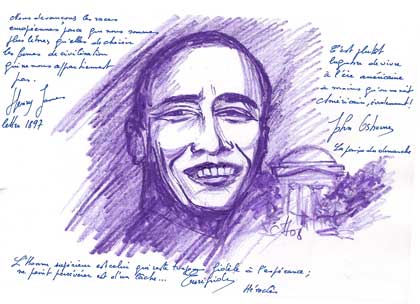 Nous devançons les races
européennes parce que nous sommes
plus libres qu'elles de choisir
les formes de civilisation
qui ne nous appartiennent
pas.
Henry James
lettre 1897
C'est plutôt
lugubre de vivre
à l'ère américaine
à moins qu'on soit
Américain, évidemment!
John Osborne
La paix du dimanche
CH08
L'Homme supérieur est celui qui reste toujours fidèle à l'espérance;
ne point persévérer est d'un lâche... Euripide